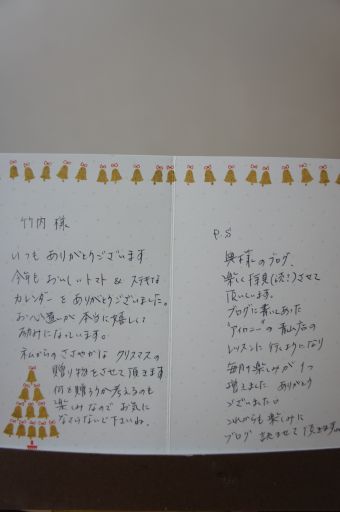 竹内 様
いつも ありがとうございます
今年も おいしい トマト & ステキな
カレンダー を ありがとうございました。
お心遣いが 本当に 嬉しくて
励みに なっています。
私からの ささやかな クリスマスの
贈り物を させて 頂きます
何を 贈ろうか 考えるのも
楽しみ なので お気に
なさらないで 下さいね。
P.S
奥様 の ブログ、
楽しく 拝見(読!) させて
頂いてます。
ブログに 書いて あった
"アイロニー" の 青山店の
レッスンに 行くように なり
毎月の 楽しみが 1つ
増えました ありがとう
ございました。
これからも 楽しみに
ブログ 読ませて 頂きます